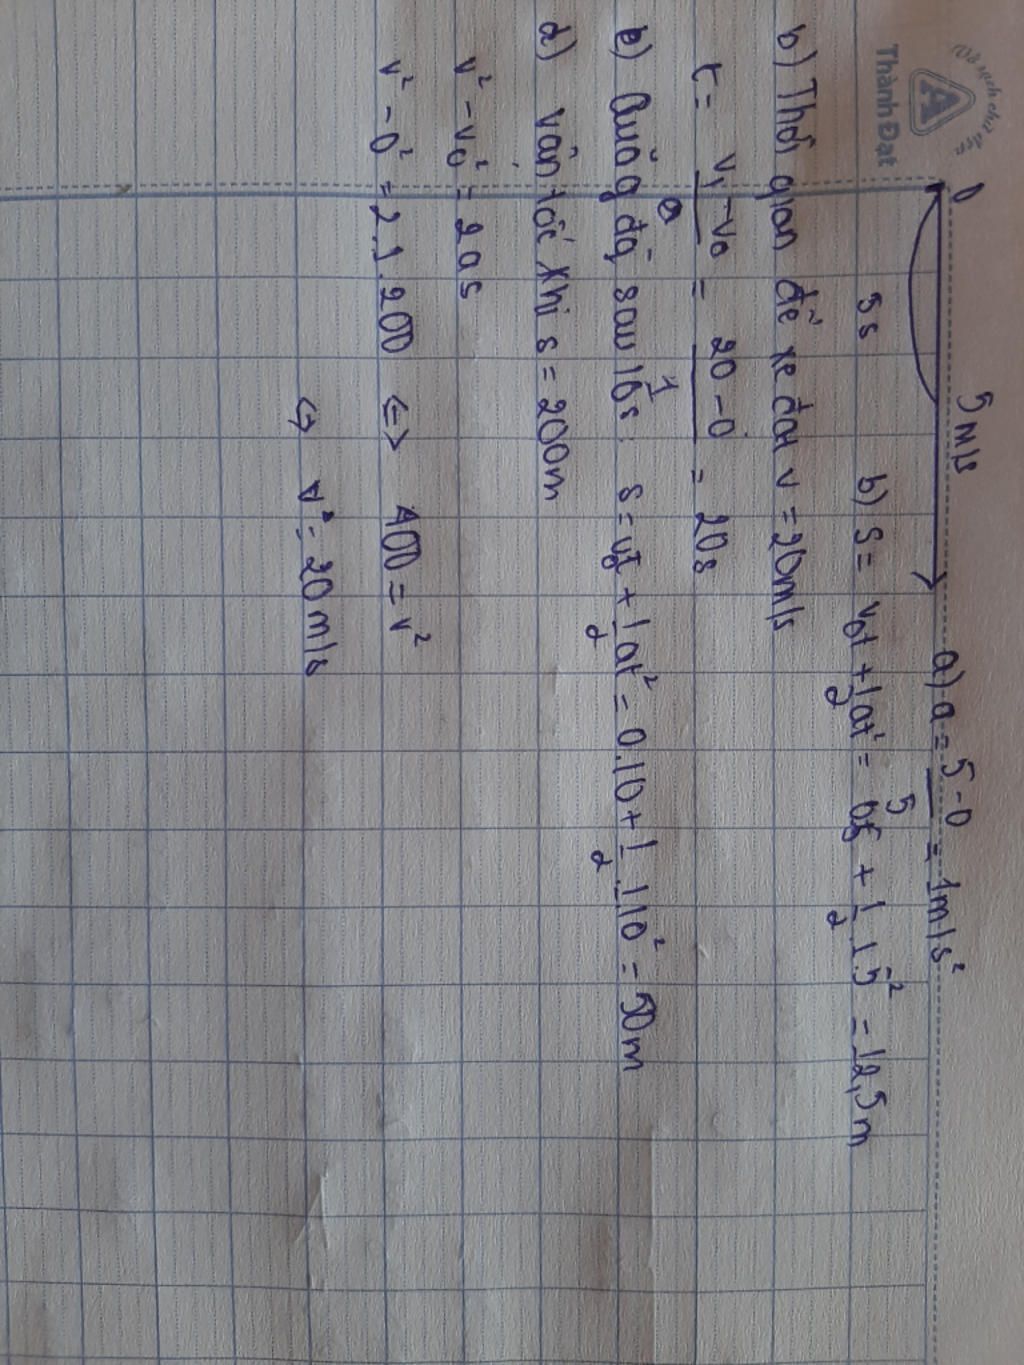 Vở sạch chữ đẹp
Thành Đạt
0 5m/s a) a = 5-0/5 = 1m/s²
5s b) S = v₀t + 1/2 at² = 0.5 + 1/2 .1.5² = 12,5m
b) Thời gian để xe đạt v = 20m/s
t = v₁-v₀/a = 20-0/1 = 20s
c) Quãng đg sau 10s: s = v₀t + 1/2 at² = 0.10 + 1/2 .1.10² = 50m
d) Vận tốc khi s = 200m
v² - v₀² = 2as
v² - 0² = 2.1.200 <=> 400 = v²
<=> v = 20m/s